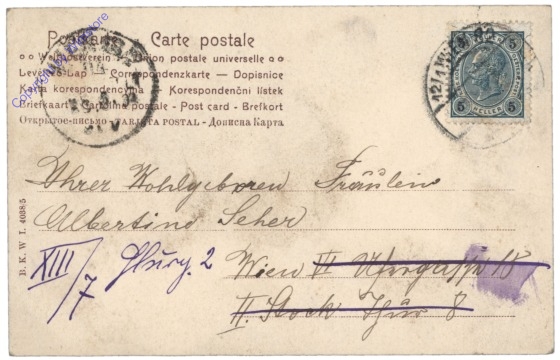 Postkarte Carte postale
Weltpostverein Union postale universelle
Levelező-Lap Correspondenzkarte Dopisnice
Karta korespondencyjna Korespondenční lístek
Briefkaart Cartolina postale - Post card - Brefkort
Открытое-письмо TARJETA POSTAL - Дописна Карта
5 5
5 HELLER 5
B. K. W. I. 4038/5
Ihrer Wohlgeboren Fräulein
Albertine Seher
XIII/7
2 Wien III 18
II. Stock Thür 8